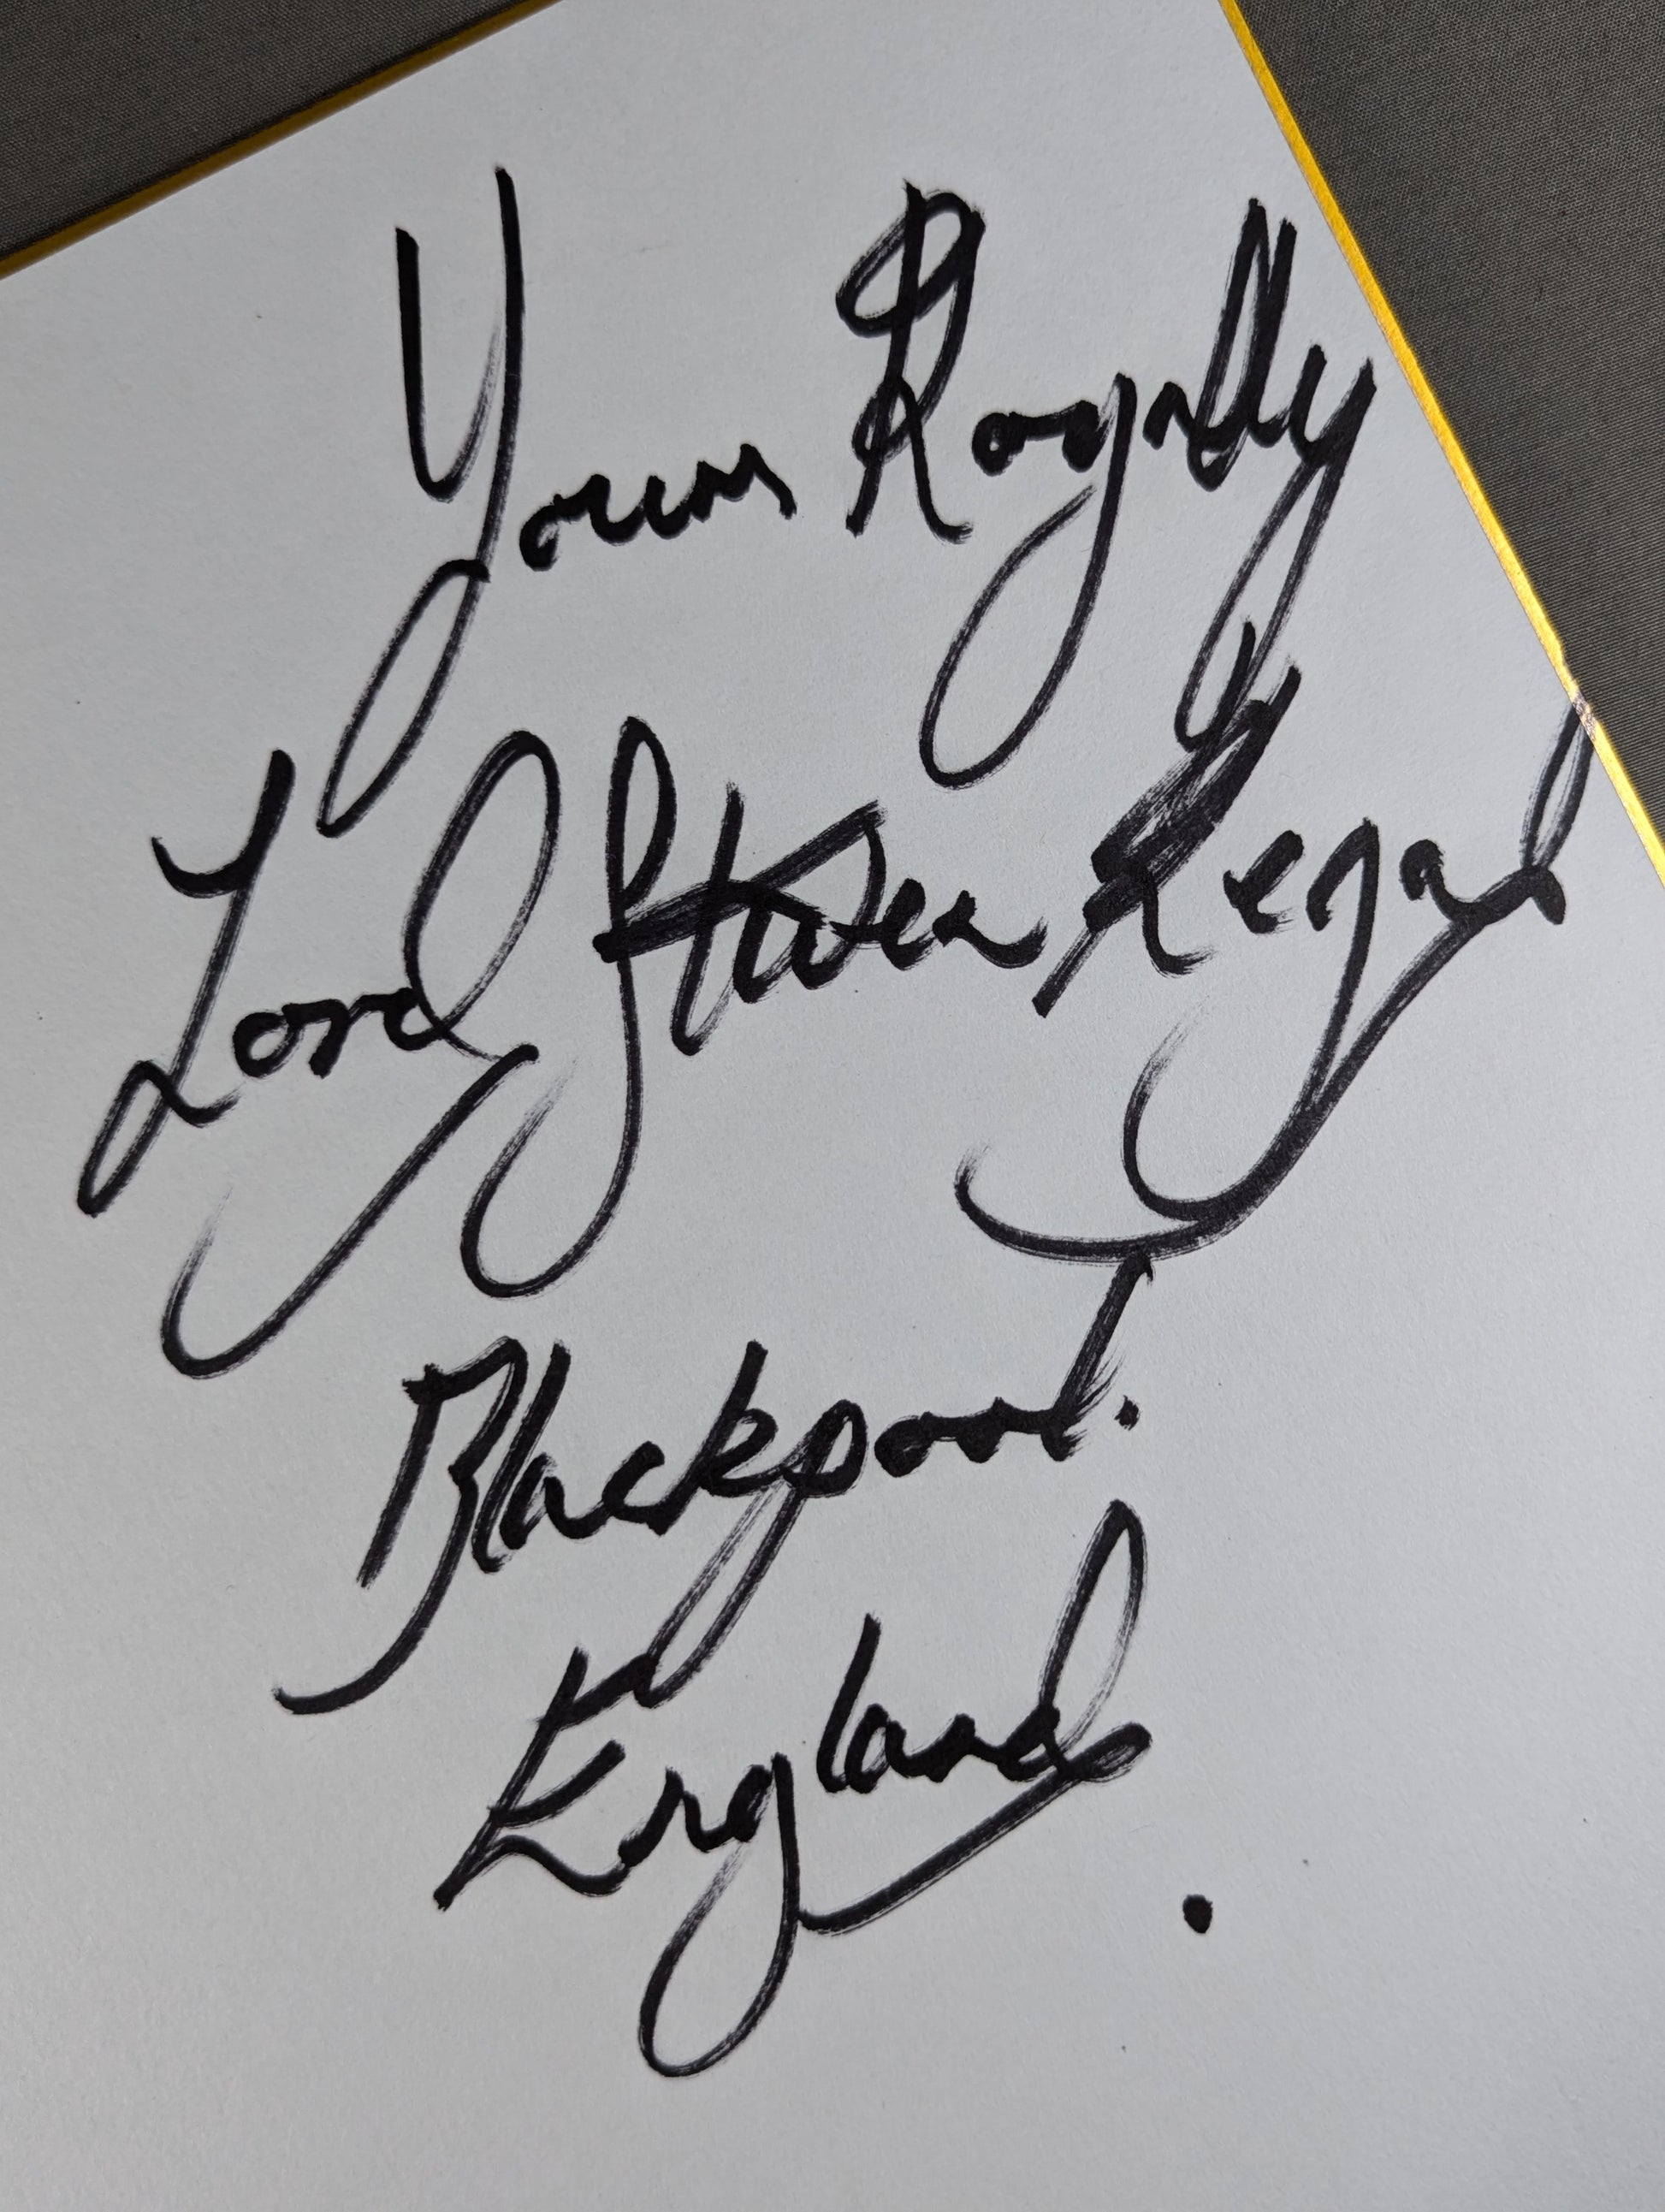 Yours Royally
Lord Steven Regal
Blackpool.
England.